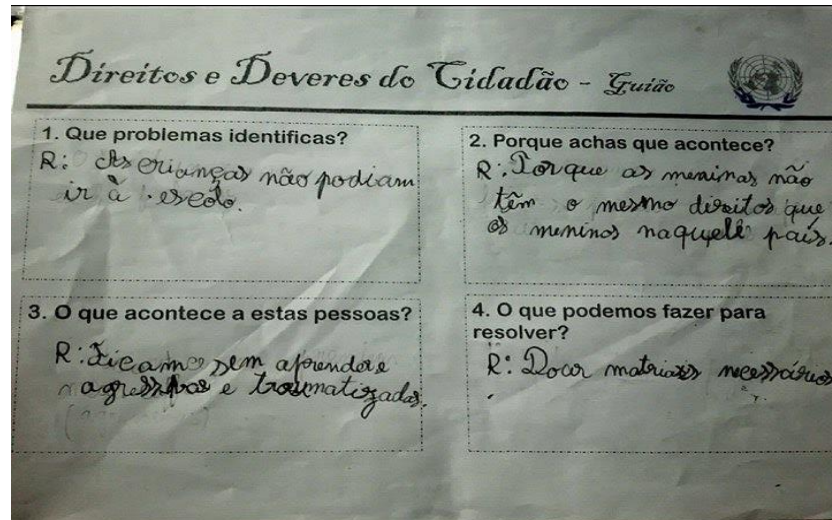 Direitos e Deveres do Cidadão - Guião
1. Que problemas identificas?
R: As crianças não podiam
ir à escola.
2. Porque achas que acontece?
R: Porque as meninas não
têm o mesmo direitos que
os meninos naquele país.
3. O que acontece a estas pessoas?
R: Ficam sem aprender e
agressivas e traumatizadas.
4. O que podemos fazer para
resolver?
R: Doar matriais necessários
.